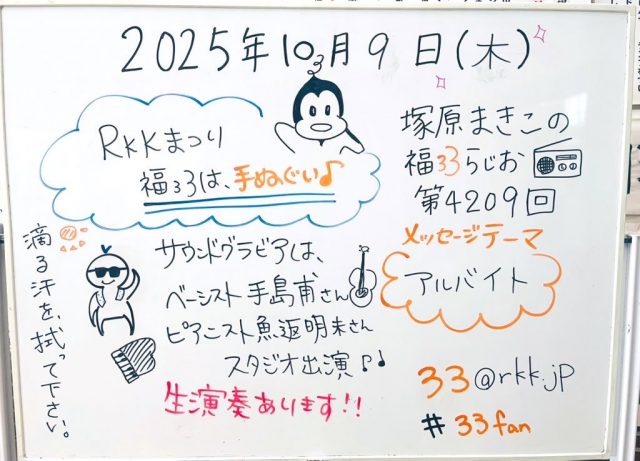 2025年10月9日(木)
RKKまつり
福33は、手ぬぐい♪
塚原まきこの
福33らじお
第4209回
メッセージテーマ
アルバイト
サウンドグラビアは、
ベーシスト手島甫さん
ピアニスト魚返明未さん
スタジオ出演♪♩
生演奏あります!!
滴る汗を、拭って下さい。
33@rkk.jp
#33fan